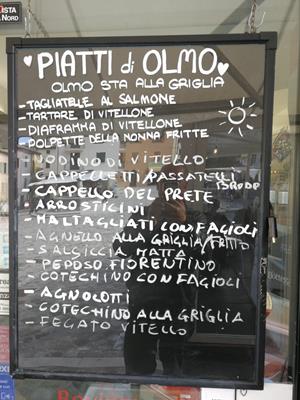 ISTA
NORD
PIATTI di OLMO
OLMO STA ALLA GRIGLIA
- TAGLIATELLE AL SALMONE
- TARTARE DI VITELLONE
- DIAFRAMMA DI VITELLONE
- POLPETTE DELLA NONNA FRITTE
- NODINO DI VITELLO
- CAPPELLETTI/PASSATELLI
BRODO
- CAPPELLO DEL PRETE
- ARROSTICINI
- MALTAGLIATI CON FAGIOLI
- AGNELLO ALLA GRIGLIA/FRITTO
- SALSICCIA MATTA
- PEPOSO FIORENTINO
- COTECHINO CON FAGIOLI
- AGNOLOTTI
- COTECHINO ALLA GRIGLIA
- FEGATO VITELLO